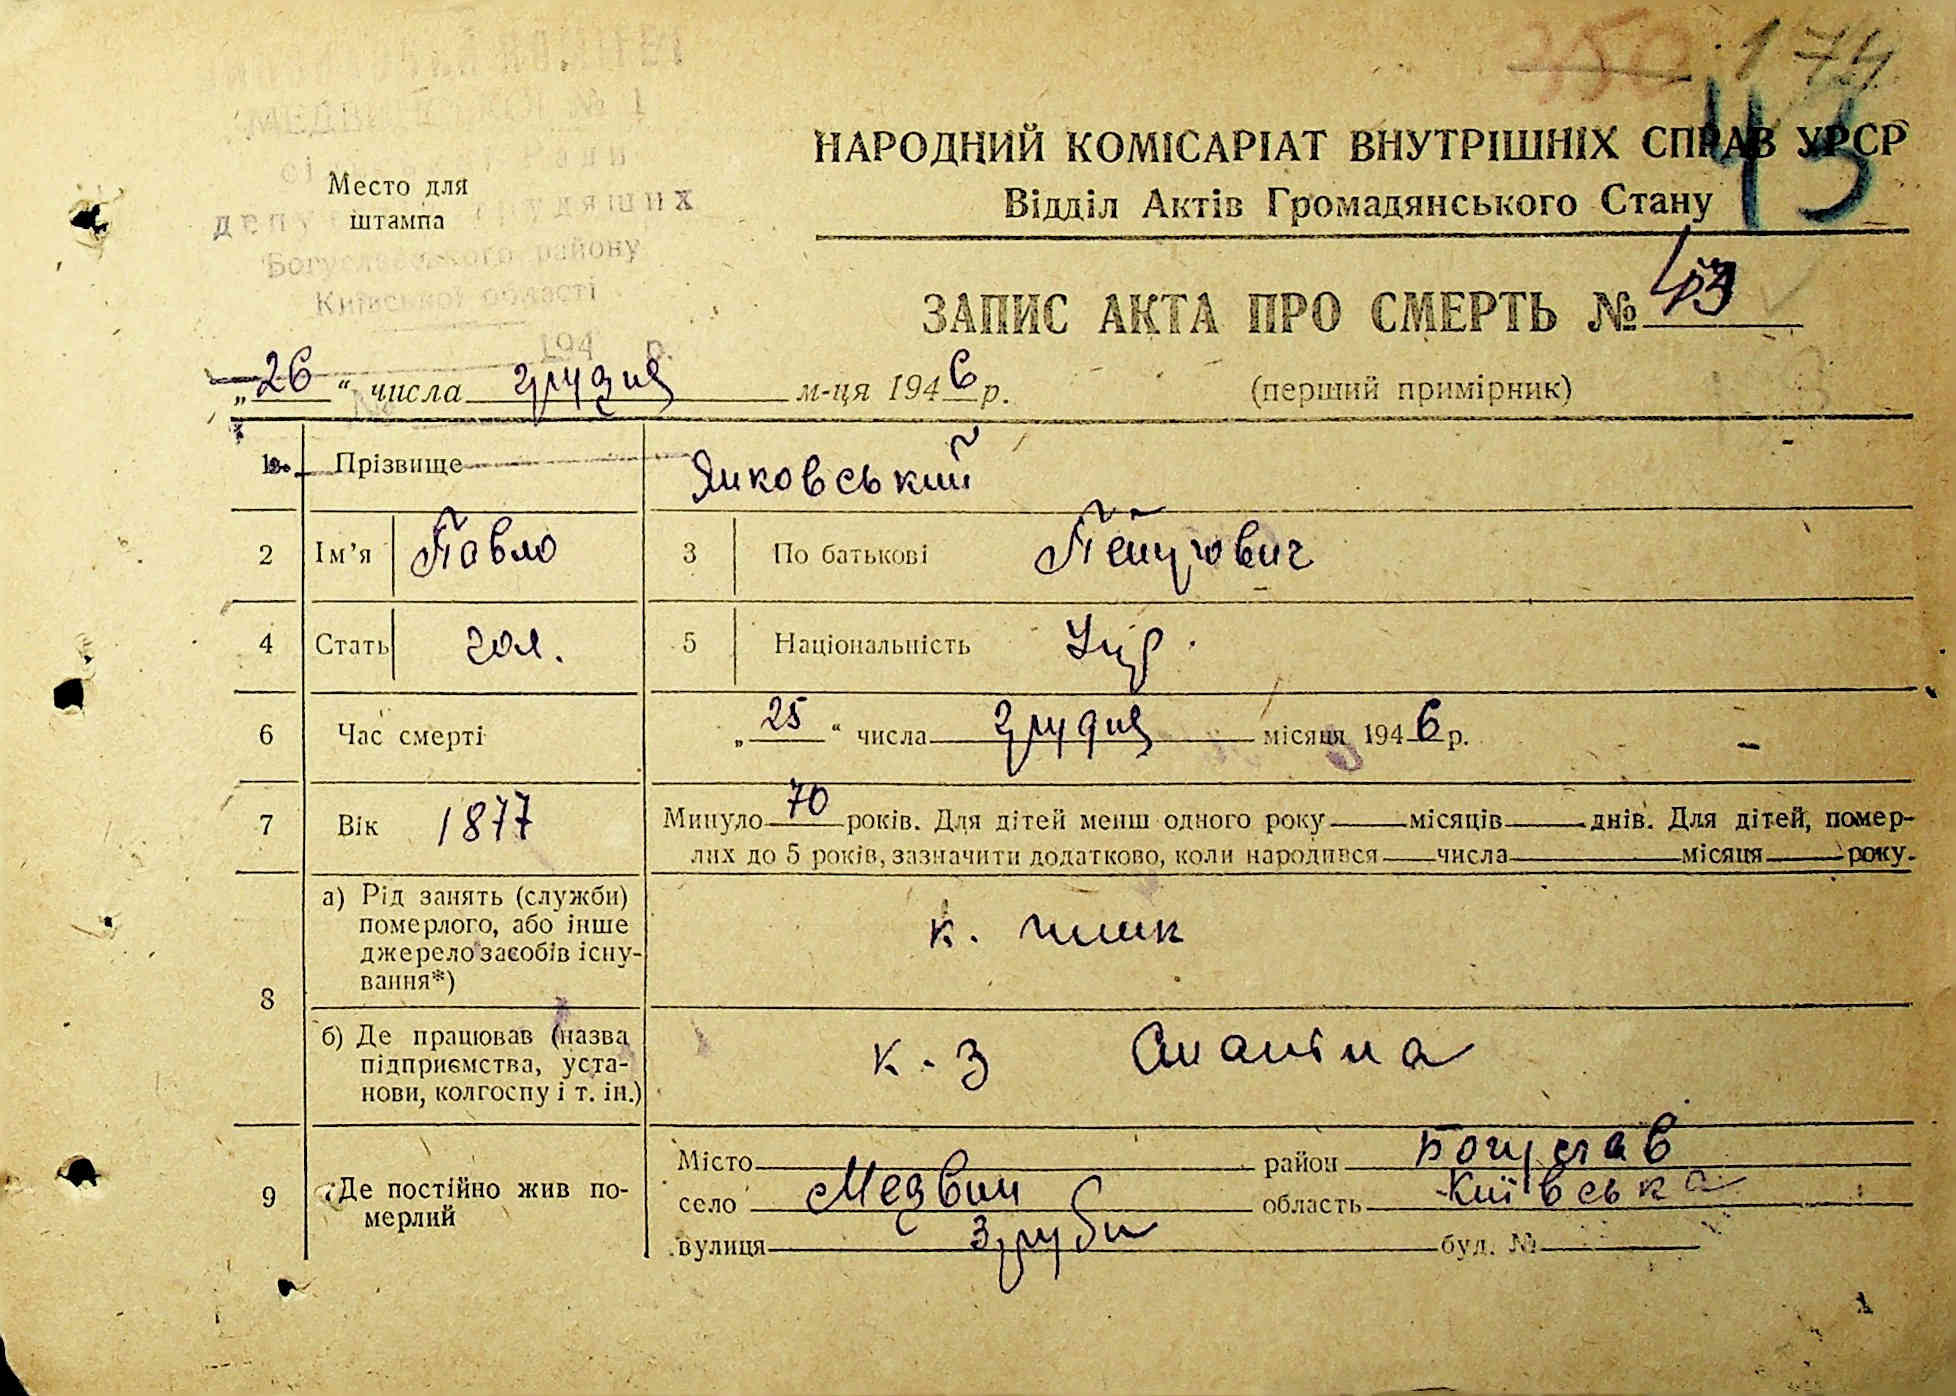 174
43
НАРОДНИЙ КОМІСАРІАТ ВНУТРІШНІХ СПРАВ УРСР
Відділ Актів Громадянського Стану
Место для
штампа
депу трудящих
Богуславського району
Київської області
194 р.
ЗАПИС АКТА ПРО СМЕРТЬ № 43
„26“ числа грудня м-ця 1946 р.
(перший примірник)
1 Прізвище Янковський
2 Ім’я Павло 3 По батькові Петрович
4 Стать чол. 5 Національність Укр.
6 Час смерті „25“ числа грудня місяця 1946 р.
7 Вік 1877 Минуло 70 років. Для дітей менш одного року місяців днів. Для дітей, помер-
лих до 5 років, зазначити додатково, коли народився числа місяця року.
8 а) Рід занять (служби)
померлого, або інше
джерело засобів існу-
вання*)
к. член
б) Де працював (назва
підприємства, уста-
нови, колгоспу і т. ін.)
к-з Сталіна
9 Де постійно жив по-
мерлий
Місто район Богуслав
село Медвин область Київська
вулиця Зруби буд. №